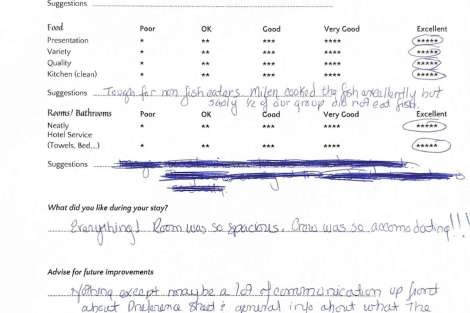 Suggestions
Food Poor OK Good Very Good Excellent
Presentation * ** *** **** *****
Variety * ** *** **** *****
Quality * ** *** **** *****
Kitchen (clean) * ** *** **** *****
Suggestions Tough for non fish eaters. Milen cooked the fish excellently but
sadly 1/2 of our group did not eat fish.
Rooms/ Bathrooms Poor OK Good Very Good Excellent
Neatly * ** *** **** *****
Hotel Service
(Towels, Bed...) * ** *** **** *****
Suggestions
What did you like during your stay?
Everything! Room was so spacious. Crew was so accomodating!!!
Advise for future improvements
Nothing except maybe a lot of communication up front
about Preference Sheet & general info about what the